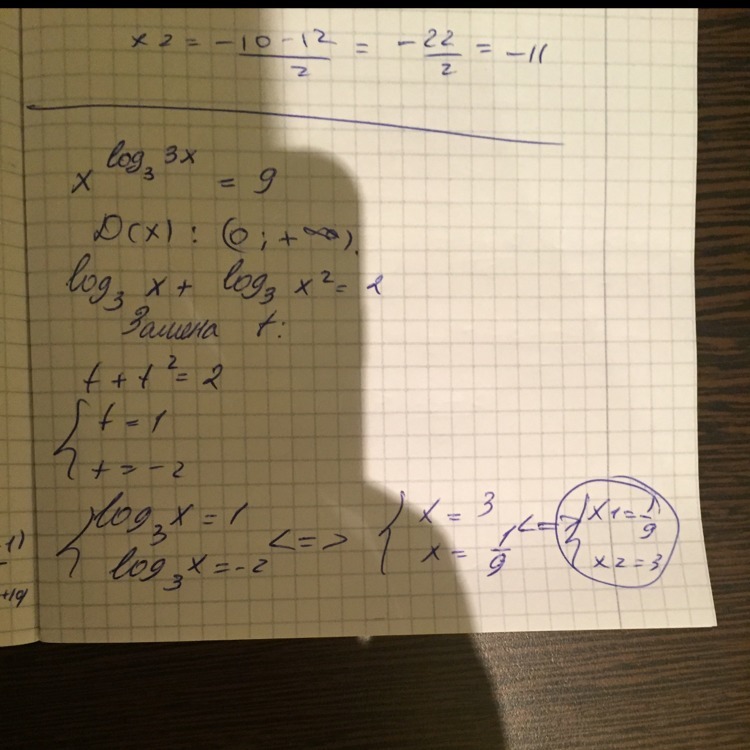 x2 = -10-12/2 = -22/2 = -11
x^log₃3x = 9
D(x): (0; +∞).
log₃ x + log₃ x² = 2
Замена t:
t + t² = 2
{ t = 1
t = -2
{ log₃ x = 1
log₃ x = -2 <=> { x = 3
x = 1/9 <=> { x1 = 1/9
x2 = 3
-1)
+19